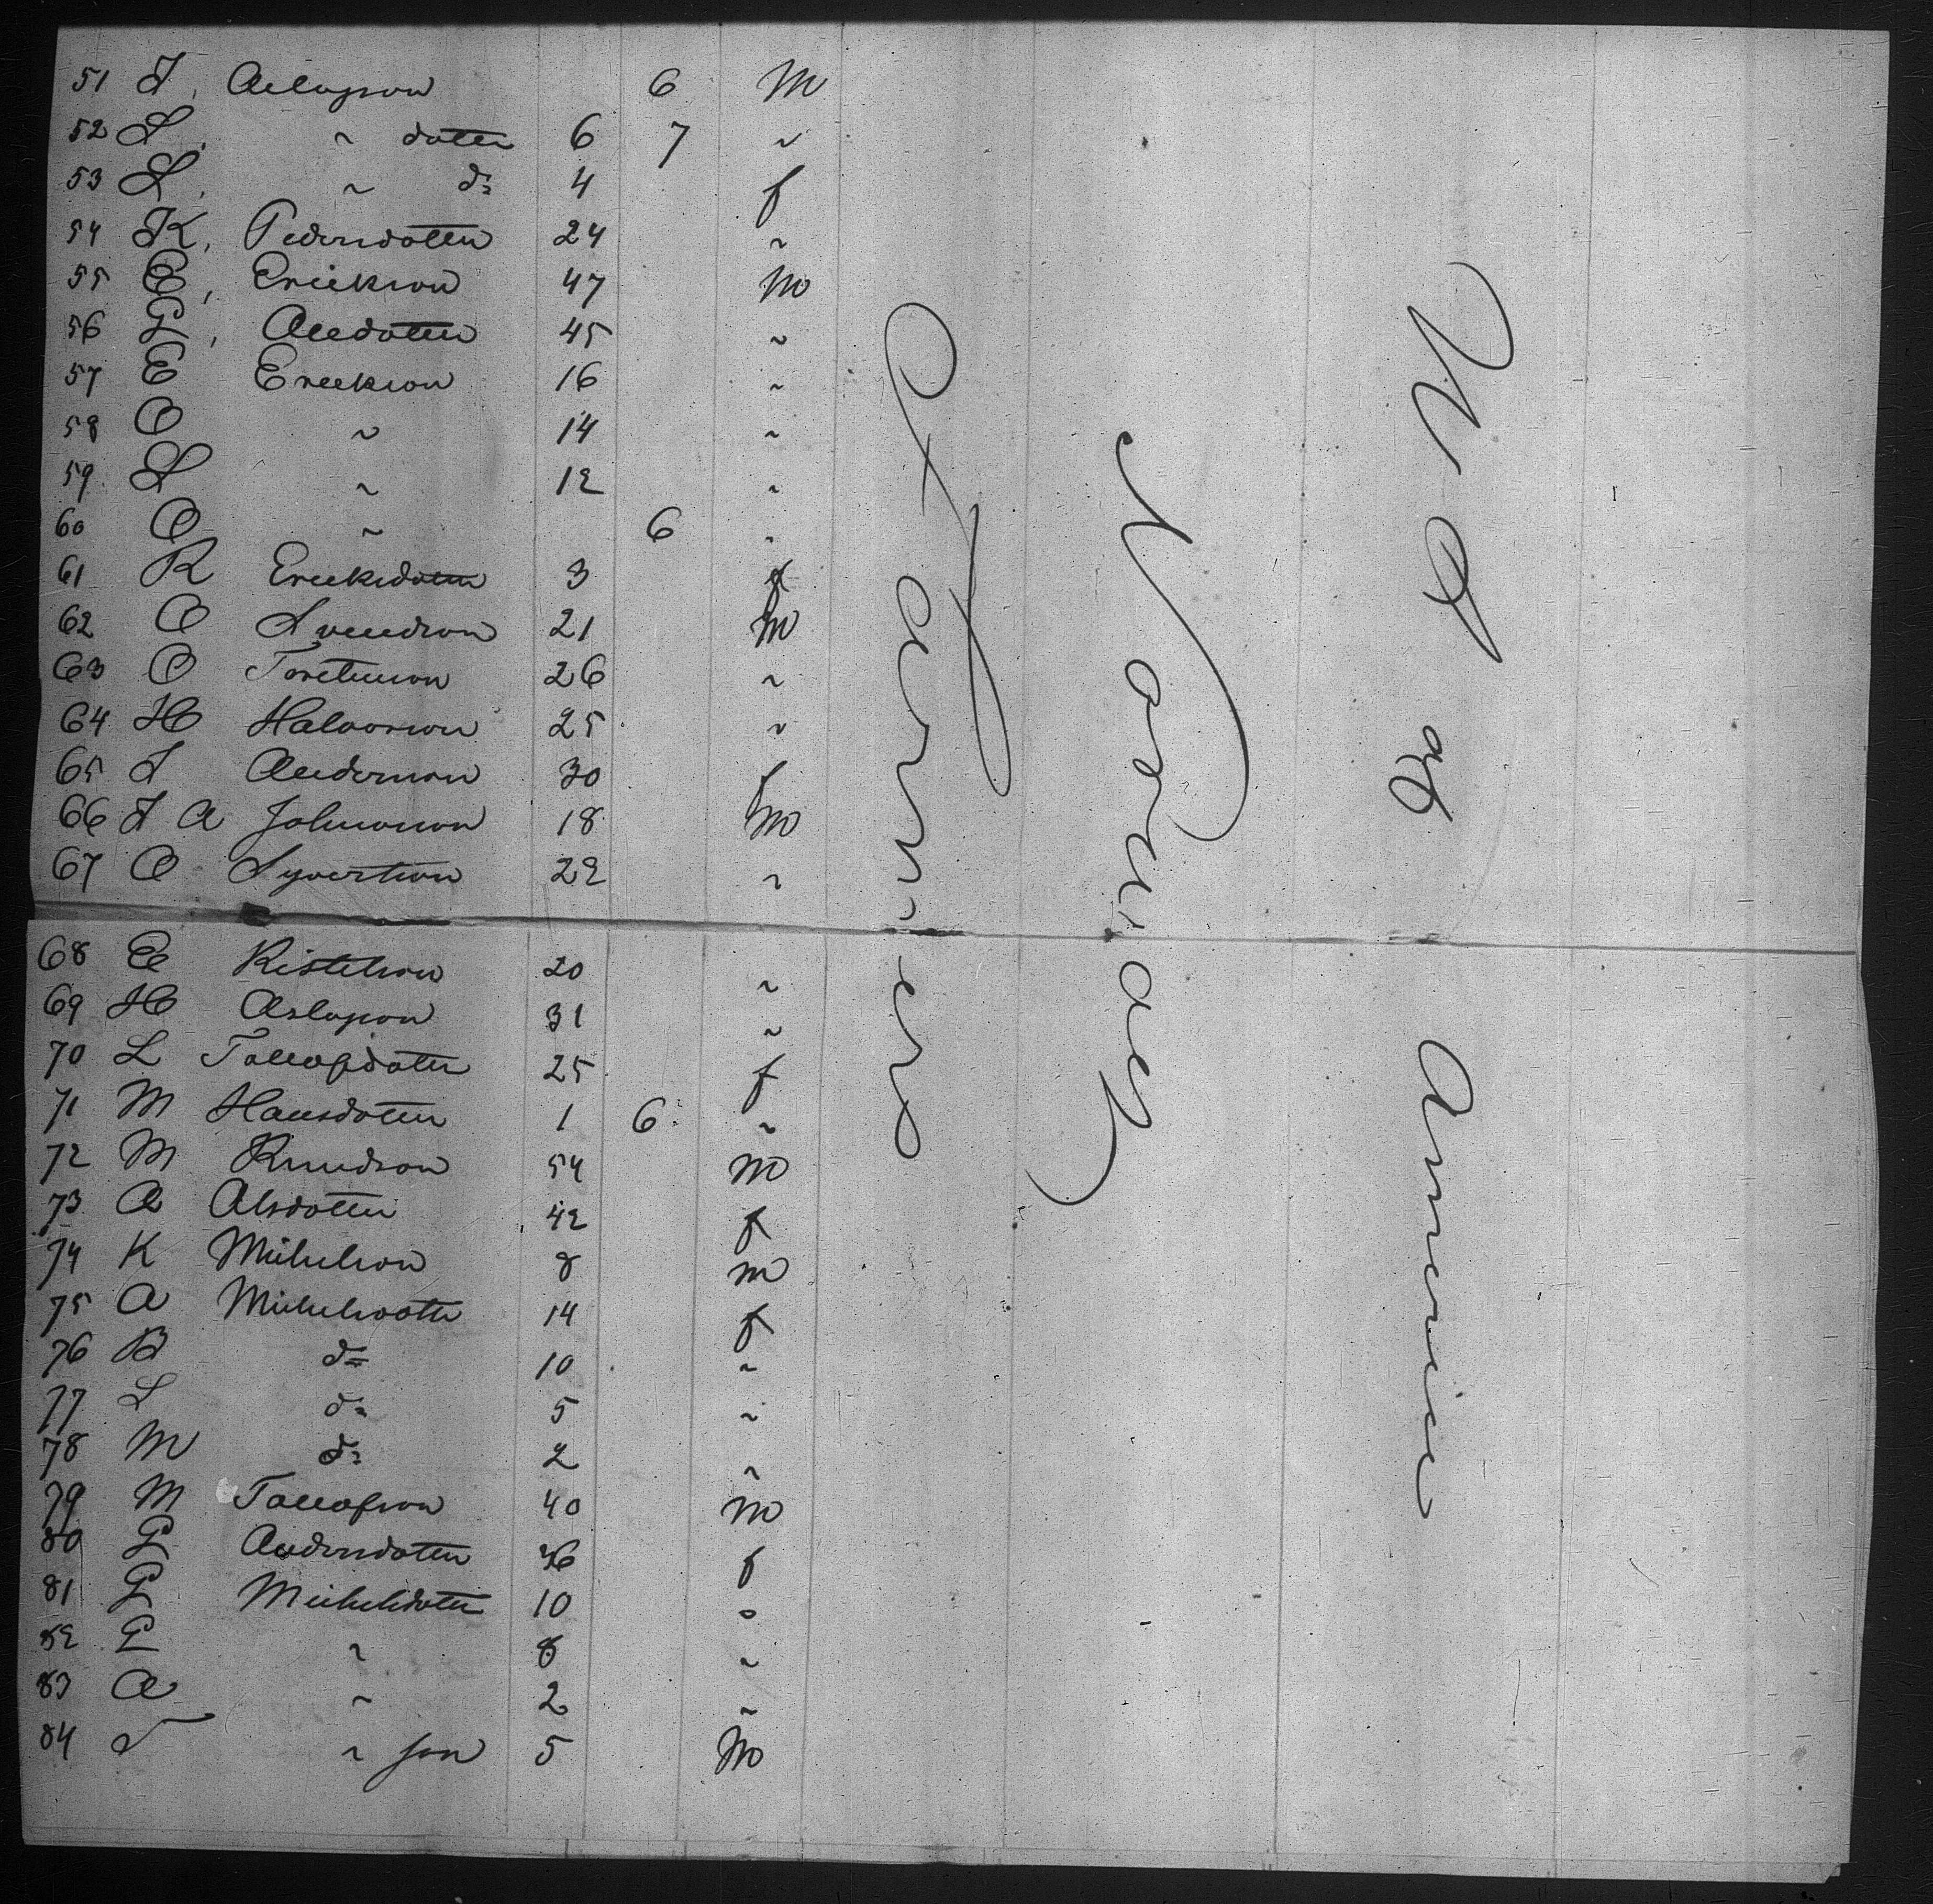 51 T, Aslagson 6 M
52 S, " datter 6 7 "
53 S, " do 4 f
54 K, Pedersdatter 24 "
55 E, Erickson 47 M
56 G, Aledatter 45 "
57 E Erickson 16 "
58 O " 14 "
59 S " 12 "
60 O " 6 "
61 R Ericksdatter 3 f
62 O Svendson 21 M
63 O 26 "
64 H Halvorson 25 "
65 T Anderson 30 f
66 T A Johnsonson 18 M
67 O Syvertson 22 "
68 E Kistelson 20 "
69 H Aslagson 31 "
70 L Tallofsdatter 25 f
71 M Hansdatter 1 6 "
72 M Knudson 54 M
73 A Alsdatter 42 f
74 K Michelson 8 M
75 A Michelsdatter 14 f
76 B do 10 "
77 L do 5 "
78 M do 2 "
79 M Tallofson 40 M
80 G Andersdatter 36 f
81 G Michelsdatter 10 "
82 G " 8 "
83 A " 2 "
84 " son 5 M
Farmers
Norway
U S of America